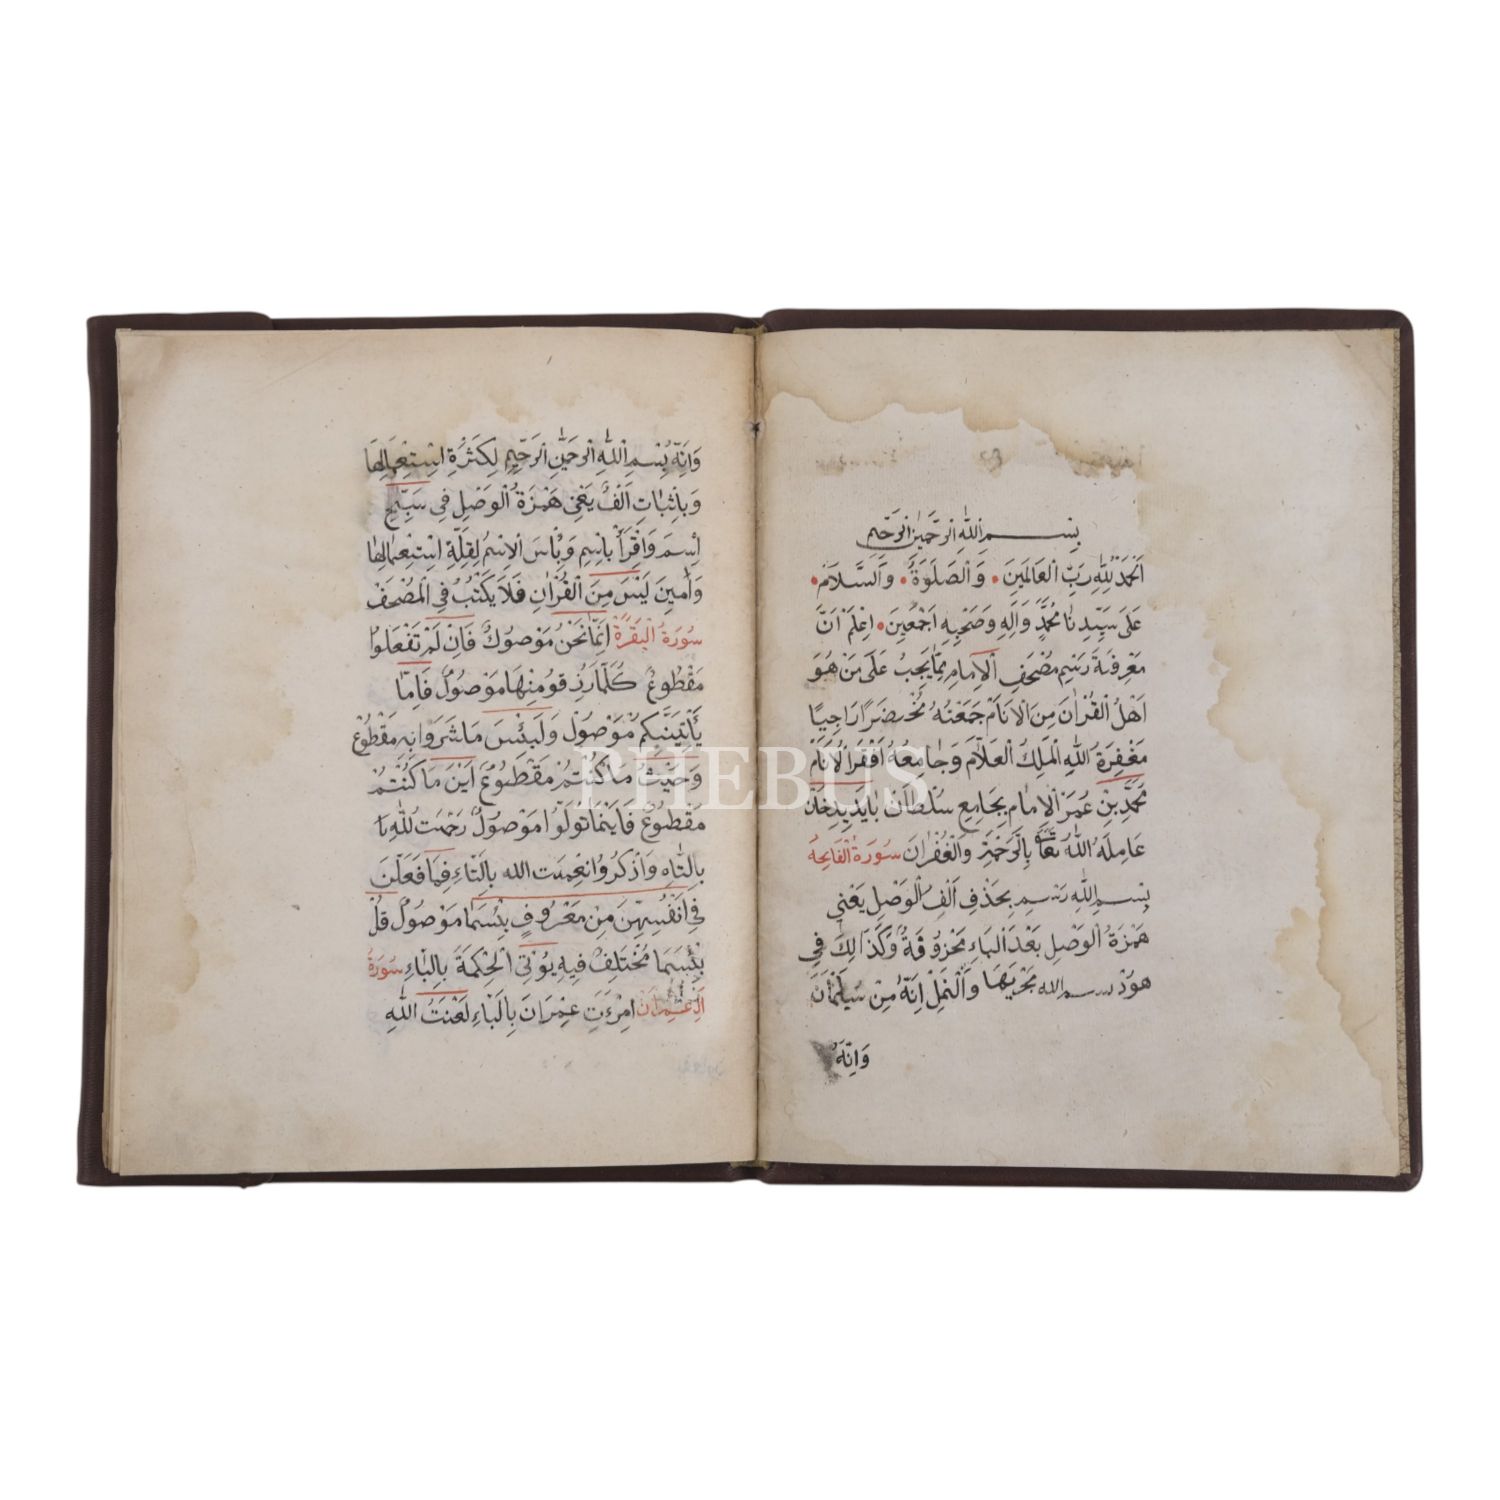 بِسْمِ اللّٰهِ الرَّحْمٰنِ الرَّحِيمِ
اَلْحَمْدُ لِلّٰهِ رَبِّ الْعَالَمِينَ • وَالصَّلَوةُ • وَالسَّلَامُ •
عَلَى سَيِّدِنَا مُحَمَّدٍ وَآلِهِ وَصَحْبِهِ اَجْمَعِينَ • اِعْلَمْ اَنَّ
مَعْرِفَةَ رَسْمِ مُصْحَفِ الْاِمَامِ مِمَّا يَجِبُ عَلَى مَنْ هُوَ
اَهْلُ الْقُرْاٰنِ مِنَ الْاَنَامِ جَمَعْتُهُ مُخْتَصَرًا رَاجِيًا
مَغْفِرَةَ اللّٰهِ الْمَلِكِ الْعَلَّامِ وَجَامِعُهُ اَفْقَرُ الْاَنَامِ
مُحَمَّدُ بْنُ عُمَرَ الْاِمَامِ بِجَامِعِ سُلْطَانْ بَايَزِيدْخَانْ
عَامِلَهُ اللّٰهُ تَعَالَى بِالرَّحْمَةِ وَالْغُفْرَانِ سُورَةُ الْفَاتِحَة
بِسْمِ اللّٰهِ رَسْمِ بِحَذْفِ اَلْفِ الْوَصْلِ يَعْنِي
هَمْزَةُ الْوَصْلِ بَعْدَ الْبَاءِ مَحْذُوفَةٌ وَكَذَالِكَ فِي
هُودْ بسم الله مَجْرٰيهَا وَالنَّمْلِ اِنَّهُ مِنْ سُلَيْمَانَ
وَاِنَّهُ
وَاِنَّهُ بِسْمِ اللّٰهِ الرَّحْمٰنِ الرَّحِيمِ لِكَثْرَةِ اسْتِعْمَالِهَا
وَبِاِثْبَاتِ اَلْفٍ يَعْنِي هَمْزَةُ الْوَصْلِ فِي سَبِّحِ
اسْمَ وَاقْرَأْ بِاسْمِ وَبِئْسَ الْاِسْمُ لِقِلَّةِ اسْتِعْمَالِهَا
وَاٰمِينَ لَيْسَ مِنَ الْقُرْاٰنِ فَلَا يَكْتُبُ فِي الْمُصْحَفِ
سُورَةُ الْبَقَرَةِ اِنَّمَا نَحْنُ مَوْصُولٌ فَاِنْ لَمْ تَفْعَلُوا
مَقْطُوعٌ كُلَّمَا رُزِقُوا مِنْهَا مَوْصُولٌ فَاِمَّا
يَأْتِيَنَّكُمْ مَوْصُولٌ وَلَبِئْسَ مَا شَرَوْا بِهِ مَقْطُوعٌ
وَحَيْثُ مَا كُنْتُمْ مَقْطُوعٌ اَيْنَ مَا كُنْتُمْ
مَقْطُوعٌ فَاَيْنَمَا تُوَلُّوا مَوْصُولٌ رَحْمَتَ اللّٰهِ
بِالتَّاءِ وَاذْكُرُوا نِعْمَتَ الله بِالتَّاءِ فِيمَا فَعَلْنَ
فِي اَنْفُسِهِنَّ مِنْ مَعْرُوفٍ بِئْسَمَا مَوْصُولٌ قُلْ
بِئْسَمَا مُخْتَلِفٌ فِيهِ يُؤْتِي الْحِكْمَةَ بِالْيَاءِ سُورَةُ
اٰلِ عِمْرَانَ امْرَءَتُ عِمْرَانَ بِالتَّاءِ لَعْنَتَ اللّٰهِ
PHEBUS